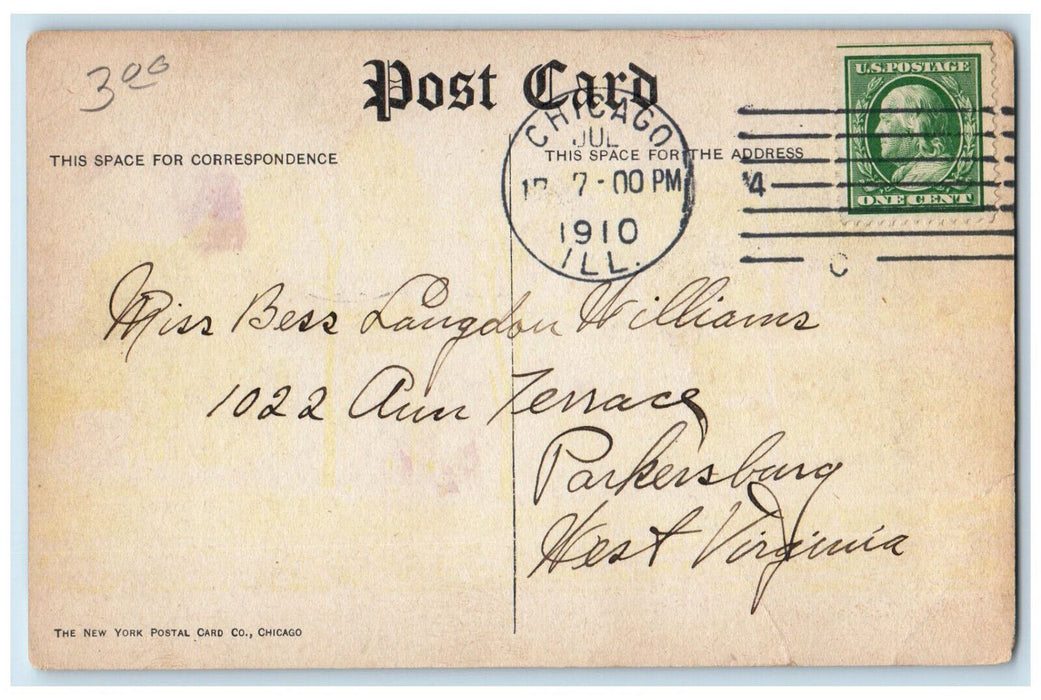 3.00
Post Card
U.S. POSTAGE
ONE CENT
THIS SPACE FOR CORRESPONDENCE
THIS SPACE FOR THE ADDRESS
CHICAGO
JUL
7-00 PM
1910
ILL.
4
Miss Bess Langdon Williams
1022 Ann Terrace
Parkersburg
West Virginia
THE NEW YORK POSTAL CARD CO., CHICAGO